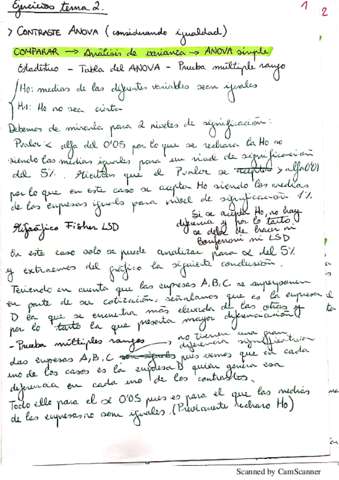 Ejercicios tema 2.
1
2
> CONTRASTE ANOVA (considerando igualdad)
COMPARAR → Análisis de varianza → ANOVA simple
Estadístico - Tabla del ANOVA - Prueba múltiple rango
Ho: medias de las diferentes variables sean iguales
H1: Ho no sea cierta
Debemos de mirarla para 2 niveles de significación:
Pvalor < alfa del 0'05 por lo que se rechaza la Ho no
siendo las medias iguales para un nivel de significación
del 5%. Mientras que el Pvalor > alfa 0'01
por lo que en este caso se acepta Ho siendo las medias
de las empresas iguales para nivel de significación 1%.
Si se acepta Ho, no hay
diferencia y por lo tanto
se debe de hacer ni
Bonferroni ni LSD
Gráfico Fisher LSD
En este caso solo se puede analizar para α del 5%
y extraemos del gráfico la siguiente conclusión.
Teniendo en cuenta que las empresas A, B, C se superponen
en parte de su cotización, señalamos que es la empresa
D la que se encuentra más elevada de las otras y
por lo tanto la que presenta mayor diferenciación
- Prueba múltiples rangos
no tienen una gran
diferencia significativa
las empresas A, B, C pues vemos que en cada
uno de los casos es la empresa D quien genera esa
diferencia en cada uno de los contrastes.
Todo ello para el α 0'05 pues es para el que las medias
de las empresas no son iguales. (Previamente rechazo Ho)
Scanned by CamScanner